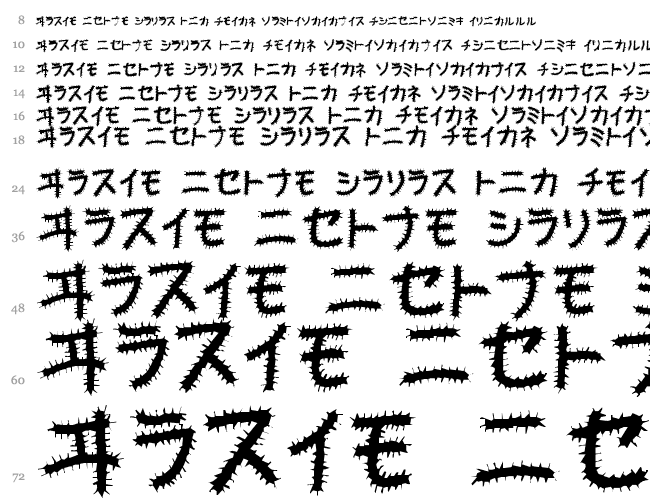 8 ヰラスイモ ニセトナモ シラリラス トニカ チモイカネ ソラミトイソカイカナイス チシニセニトソニミキ イリニカルルル
10 ヰラスイモ ニセトナモ シラリラス トニカ チモイカネ ソラミトイソカイカナイス チシニセニトソニミキ イリニカルル
12 ヰラスイモ ニセトナモ シラリラス トニカ チモイカネ ソラミトイソカイカナイス チシニセニトソニ
14 ヰラスイモ ニセトナモ シラリラス トニカ チモイカネ ソラミトイソカイカナイス チシ
16 ヰラスイモ ニセトナモ シラリラス トニカ チモイカネ ソラミトイソカイカナイス
18 ヰラスイモ ニセトナモ シラリラス トニカ チモイカネ ソラミトイソ
24 ヰラスイモ ニセトナモ シラリラス トニカ チモイ
36 ヰラスイモ ニセトナモ シラリラス
48 ヰラスイモ ニセトナモ
60 ヰラスイモ ニセト
72 ヰラスイモ ニセ